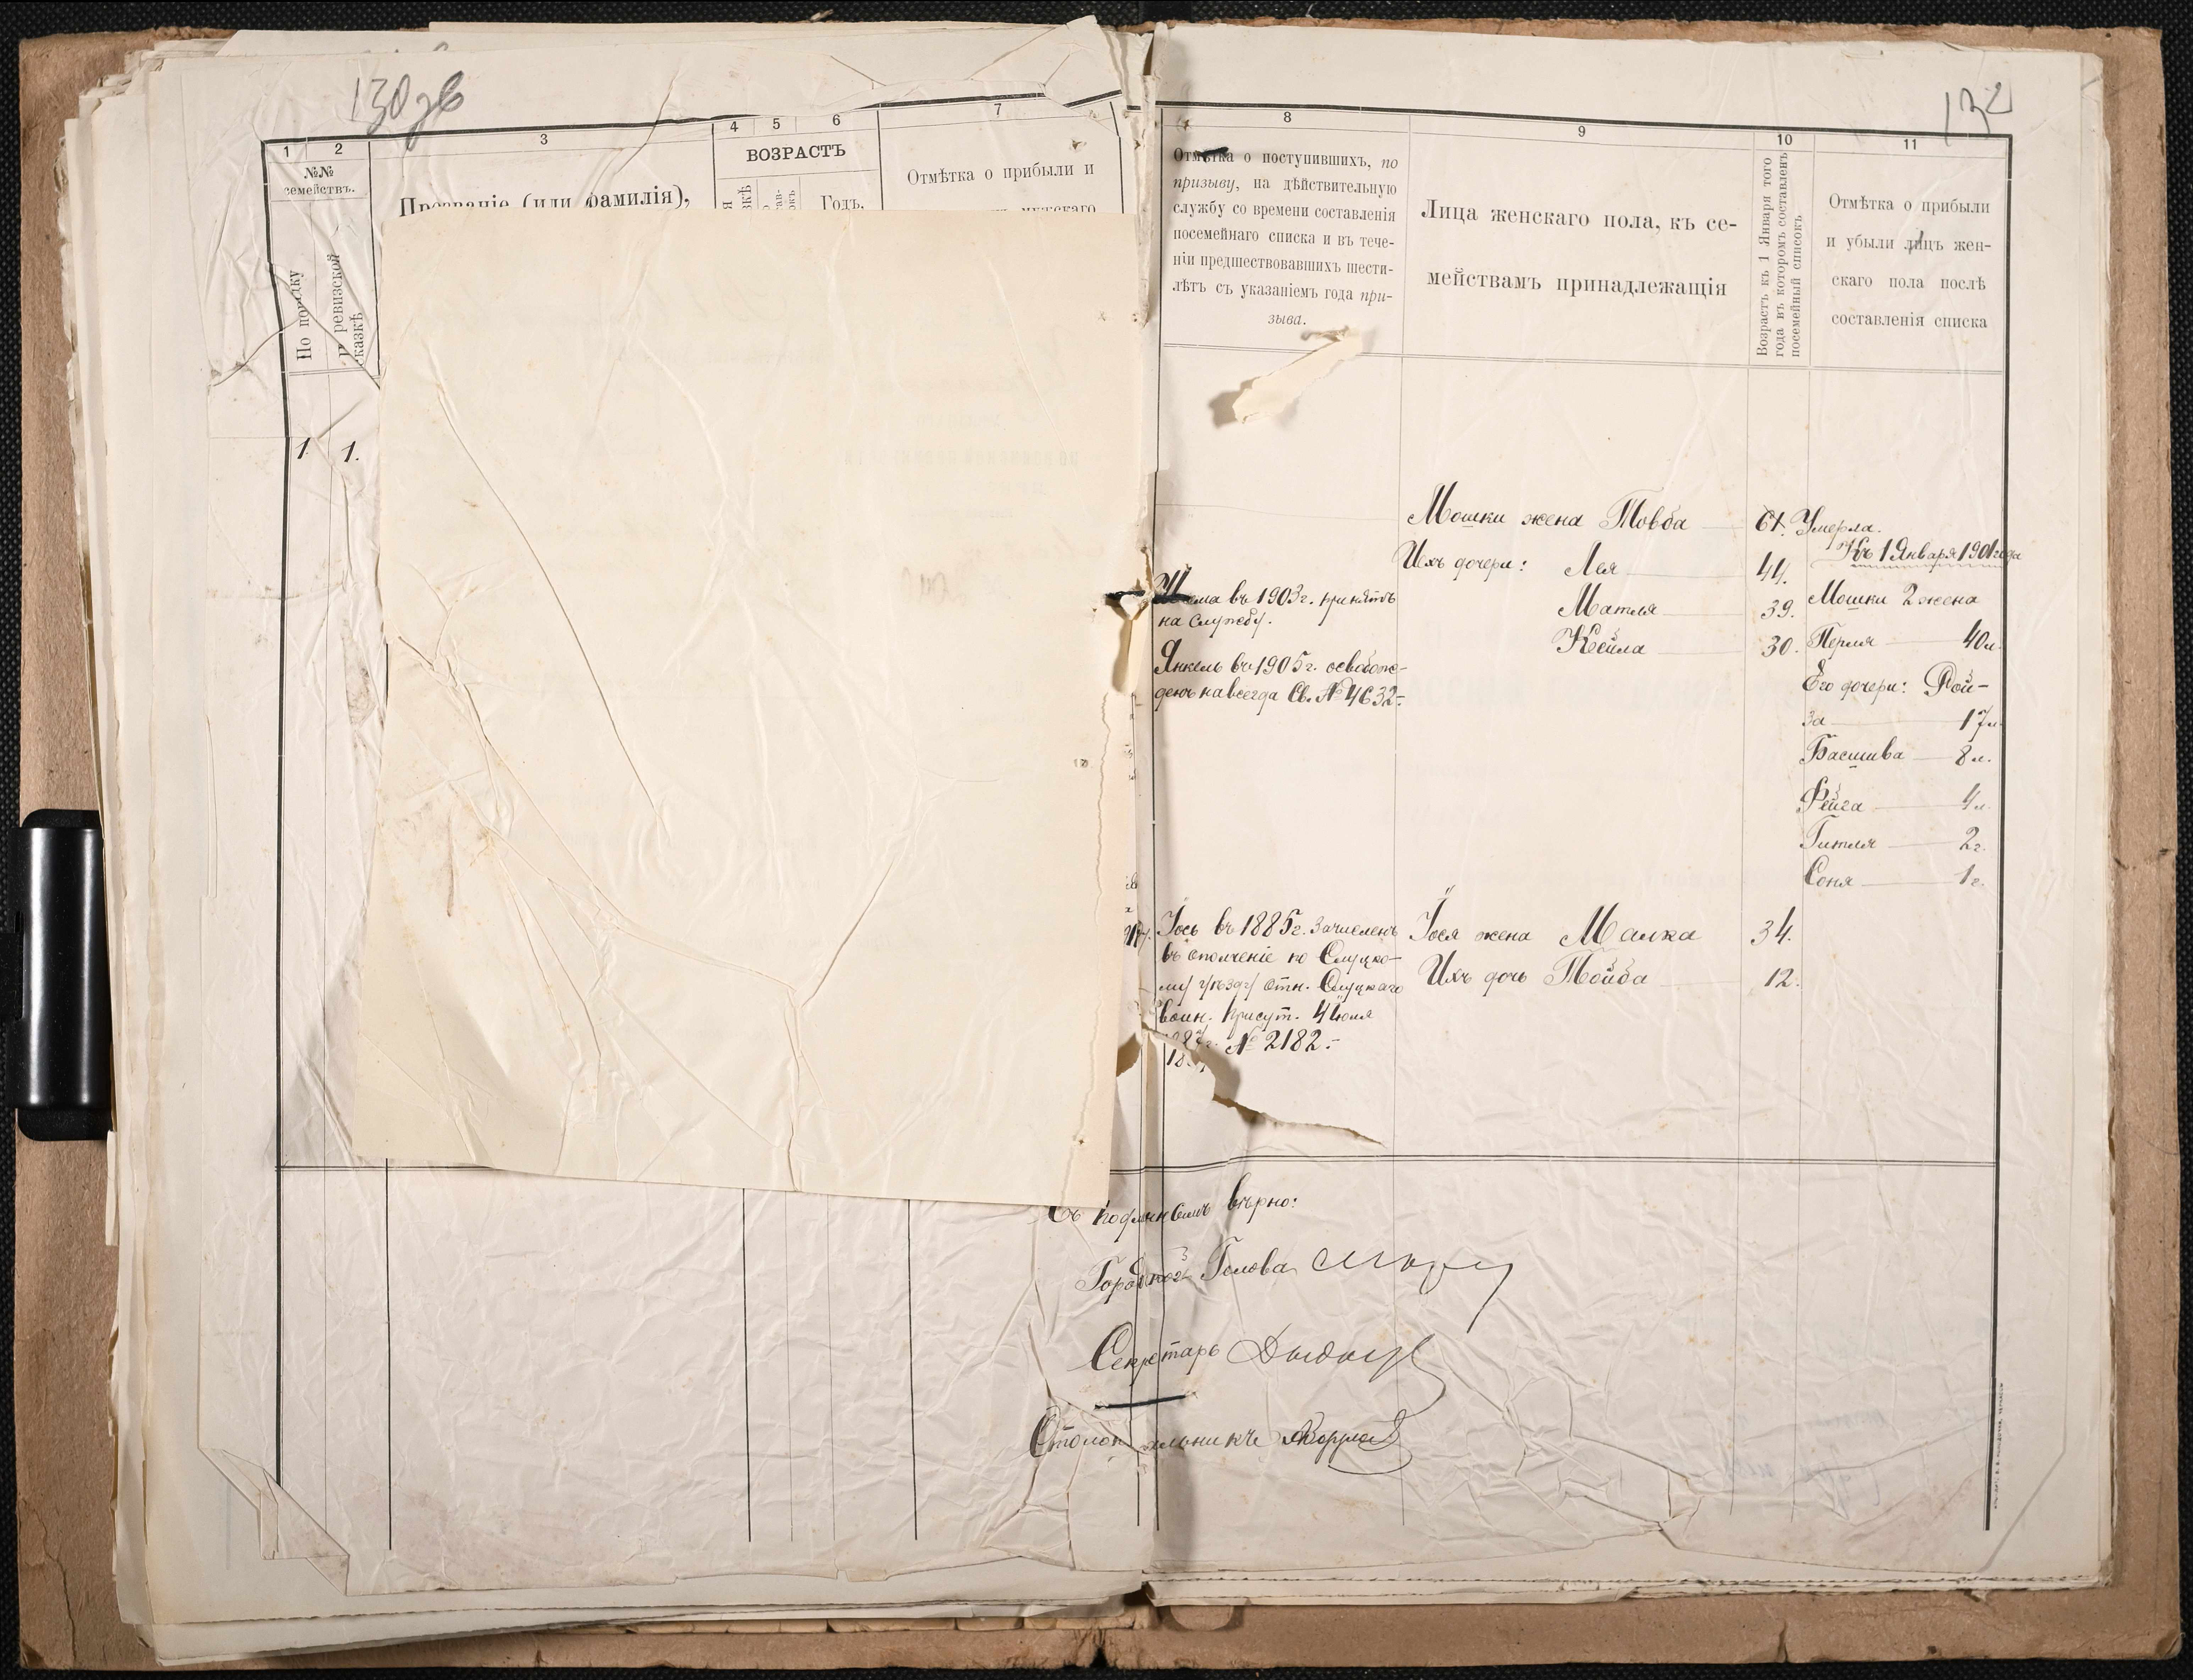 130 об
132
1
2
3
4
5
6
7
№№
семействъ.
По порядку
ревизской
сказкѣ
Прозваніе (или фамилія),
ВОЗРАСТЪ
Годъ,
Отмѣтка о прибыли и
1.
1.
8
9
10
11
Отмѣтка о поступившихъ, по
призыву, на дѣйствительную
службу со времени составленія
посемейнаго списка и въ тече-
ніи предшествовавшихъ шести-
лѣтъ съ указаніемъ года при-
зыва.
Лица женскаго пола, къ се-
мействамъ принадлежащія
Возрастъ къ 1 Января того
года въ которомъ составленъ
посемейный списокъ
Отмѣтка о прибыли
и убыли лицъ жен-
скаго пола послѣ
составленія списка
Мошки жена Товба 61. Умерла.
Ихъ дочери: Лея 44.
Матля 39.
Кейла 30.
Къ 1 Января 1901 года
Мошки 2 жена
Перля 40 л.
Его дочери: Рой-
за 17 л.
Басшива 8 л.
Фейга 4 л.
Гитля 2 г.
Соня 1 г.
въ 1903 г. принятъ
на службу.
Янкель въ 1905 г. освобож-
денъ навсегда Св. № 4632.-
Іось въ 1885 г. зачисленъ
въ ополченіе по Слуцко-
му уѣзду отн. Слуцкаго
воин. присут. 4 Іюля
№ 2182.-
Іося жена Малка 34.
Ихъ дочь Тойба 12.
Съ подлиннымъ вѣрно:
Городской Голова
Секретарь
Столоначальникъ